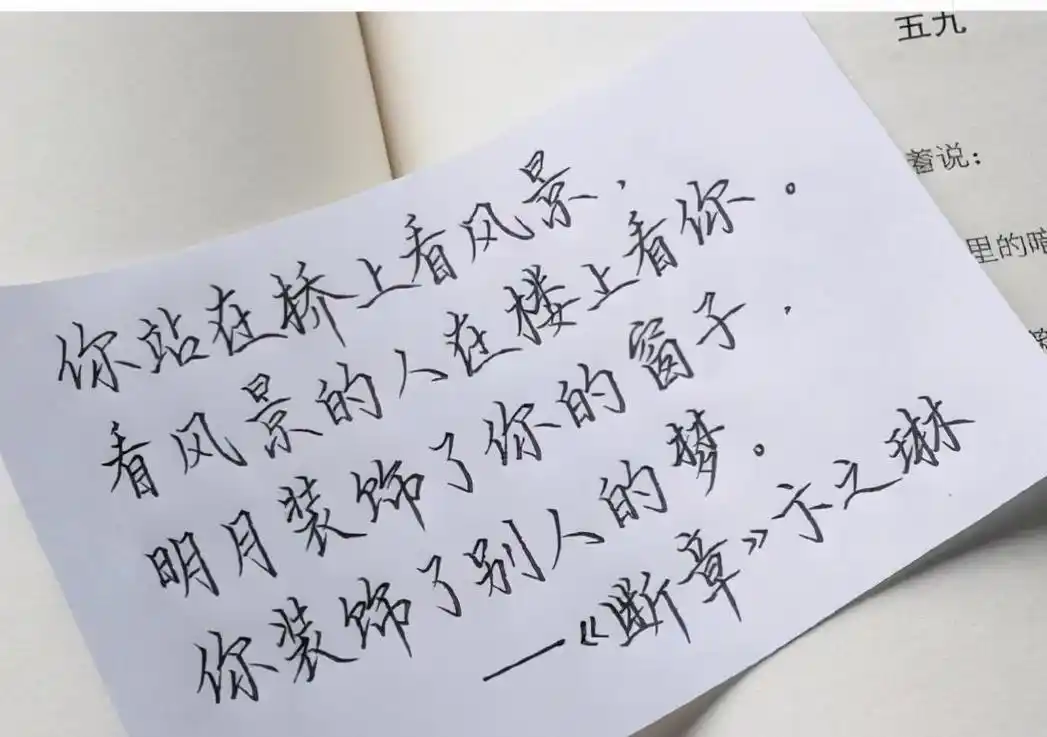 你站在桥上看风景，
看风景的人在楼上看你。
明月装饰了你的窗子，
你装饰了别人的梦。
—《断章》卞之琳
五九
着说：
里的暗